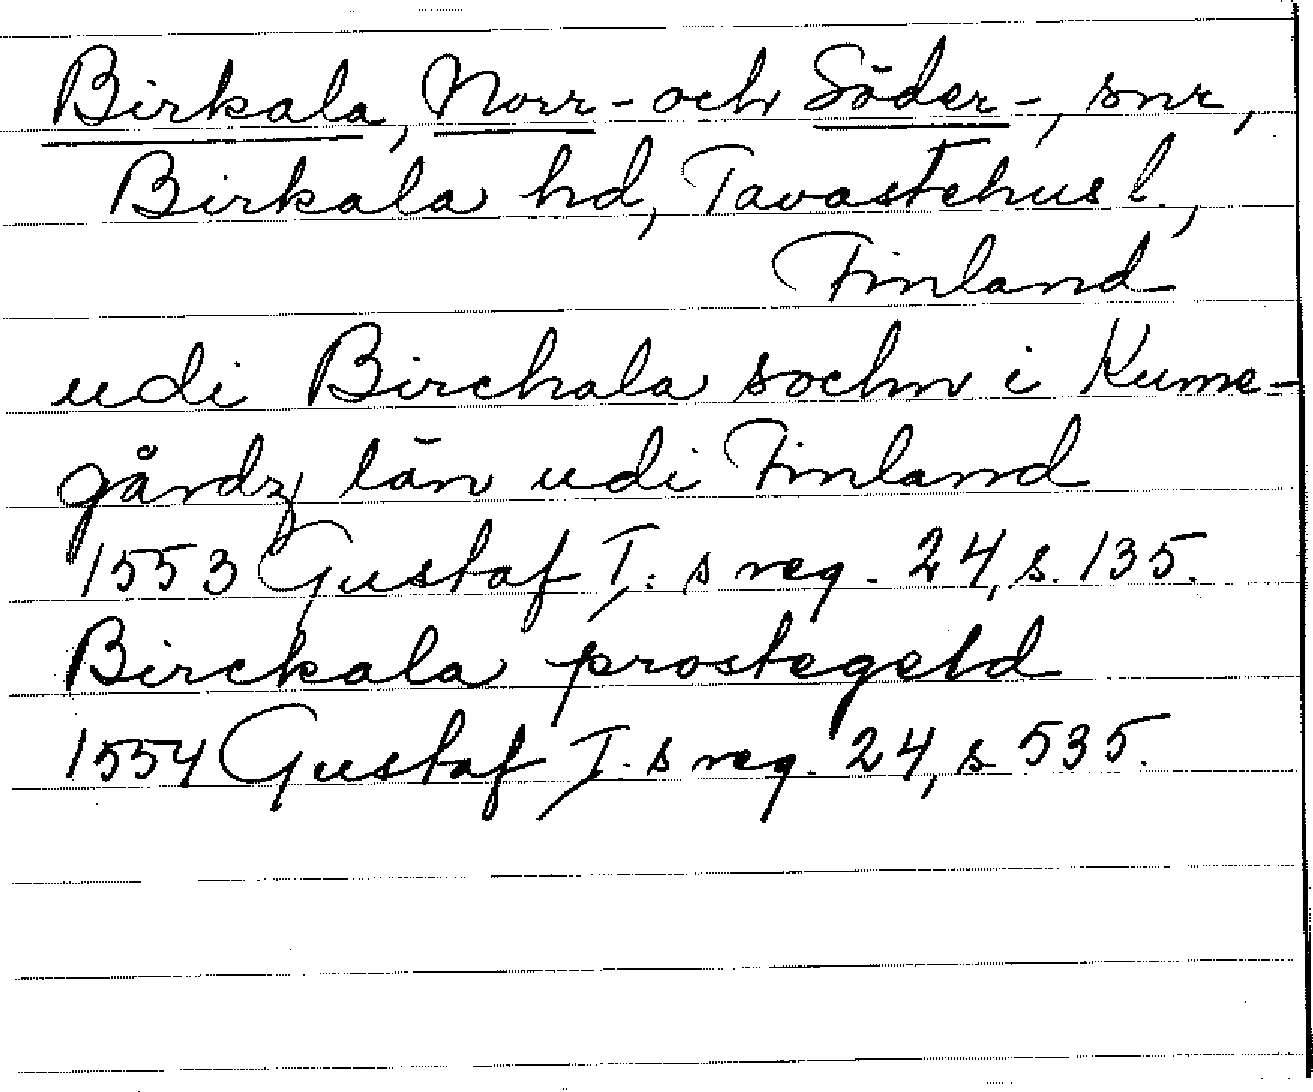 Birkala, Norr- och Söder-, snr,
Birkala hd, Tavastehus l.,
Finland
udi Birchala sochn i Kume-
gårdz län udi Finland
1553 Gustaf I: s reg. 24, s. 135.
Birckala prostegeld
1554 Gustaf I. s reg. 24, s 535.